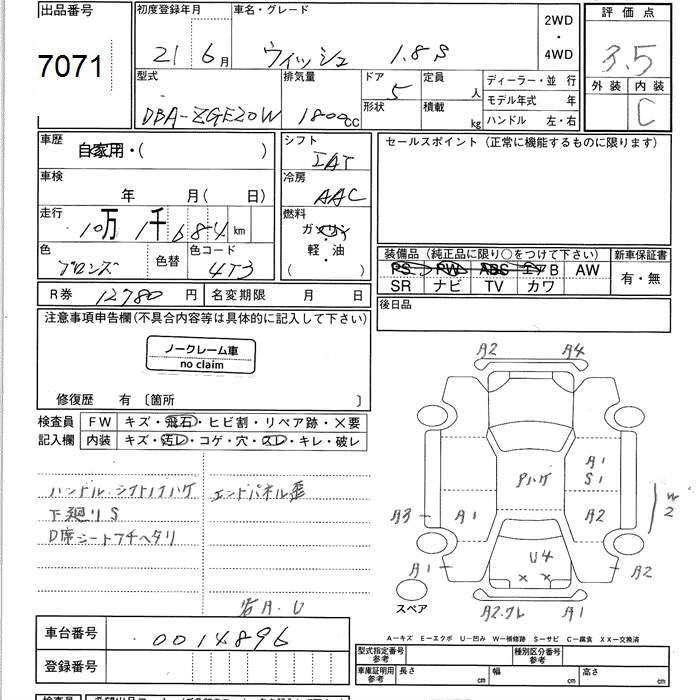 出品番号
7071
初度登録年月
車名・グレード
21 6月 ウィッシュ 1.8S
2WD
・
4WD
評価点
3.5
外装 内装
C
型式
DBA-ZGE20W
排気量
1800cc
ドア
5
形状
定員
人
積載
kg
ディーラー・並行
モデル年式 年
ハンドル 左・右
車歴
自家用・( )
車検
年 月( 日)
走行
10万1千684km
色
ブロンズ
色替
色コード
4T3
シフト
IAT
冷房
AAC
燃料
ガソリン
軽・油
( )
セールスポイント(正常に機能するものに限ります)
装備品(純正品に限り○をつけて下さい)
PS PW ABS エアB AW
SR ナビ TV カワ
新車保証書
有・無
R券 12780円
名変期限 月 日
後日品
注意事項申告欄(不具合内容等は具体的に記入して下さい)
ノークレーム車
no claim
修復歴 有〔箇所 〕
検査員
記入欄
FW キズ・飛石・ヒビ割・リペア跡・×要
内装 キズ・汚レ・コゲ・穴・スレ・キレ・破レ
ハンドル・シフトノブハゲ
エンドパネル歪
下廻りS
D席シートフチヘタリ
岩A.U
A2 A4
A1
S1
Pハゲ
A3 A1 A2
W
2
U4
× ×
A1 A2
スペア
A2.クレ A1
A―キズ E―エクボ U―凹み W―補修跡 S―サビ C―腐食 XX―交換済
車台番号
0014896
登録番号
型式指定番号
参考
種別区分番号
参考
車庫証明用
参考
長さ cm 幅 cm 高さ cm
検査員